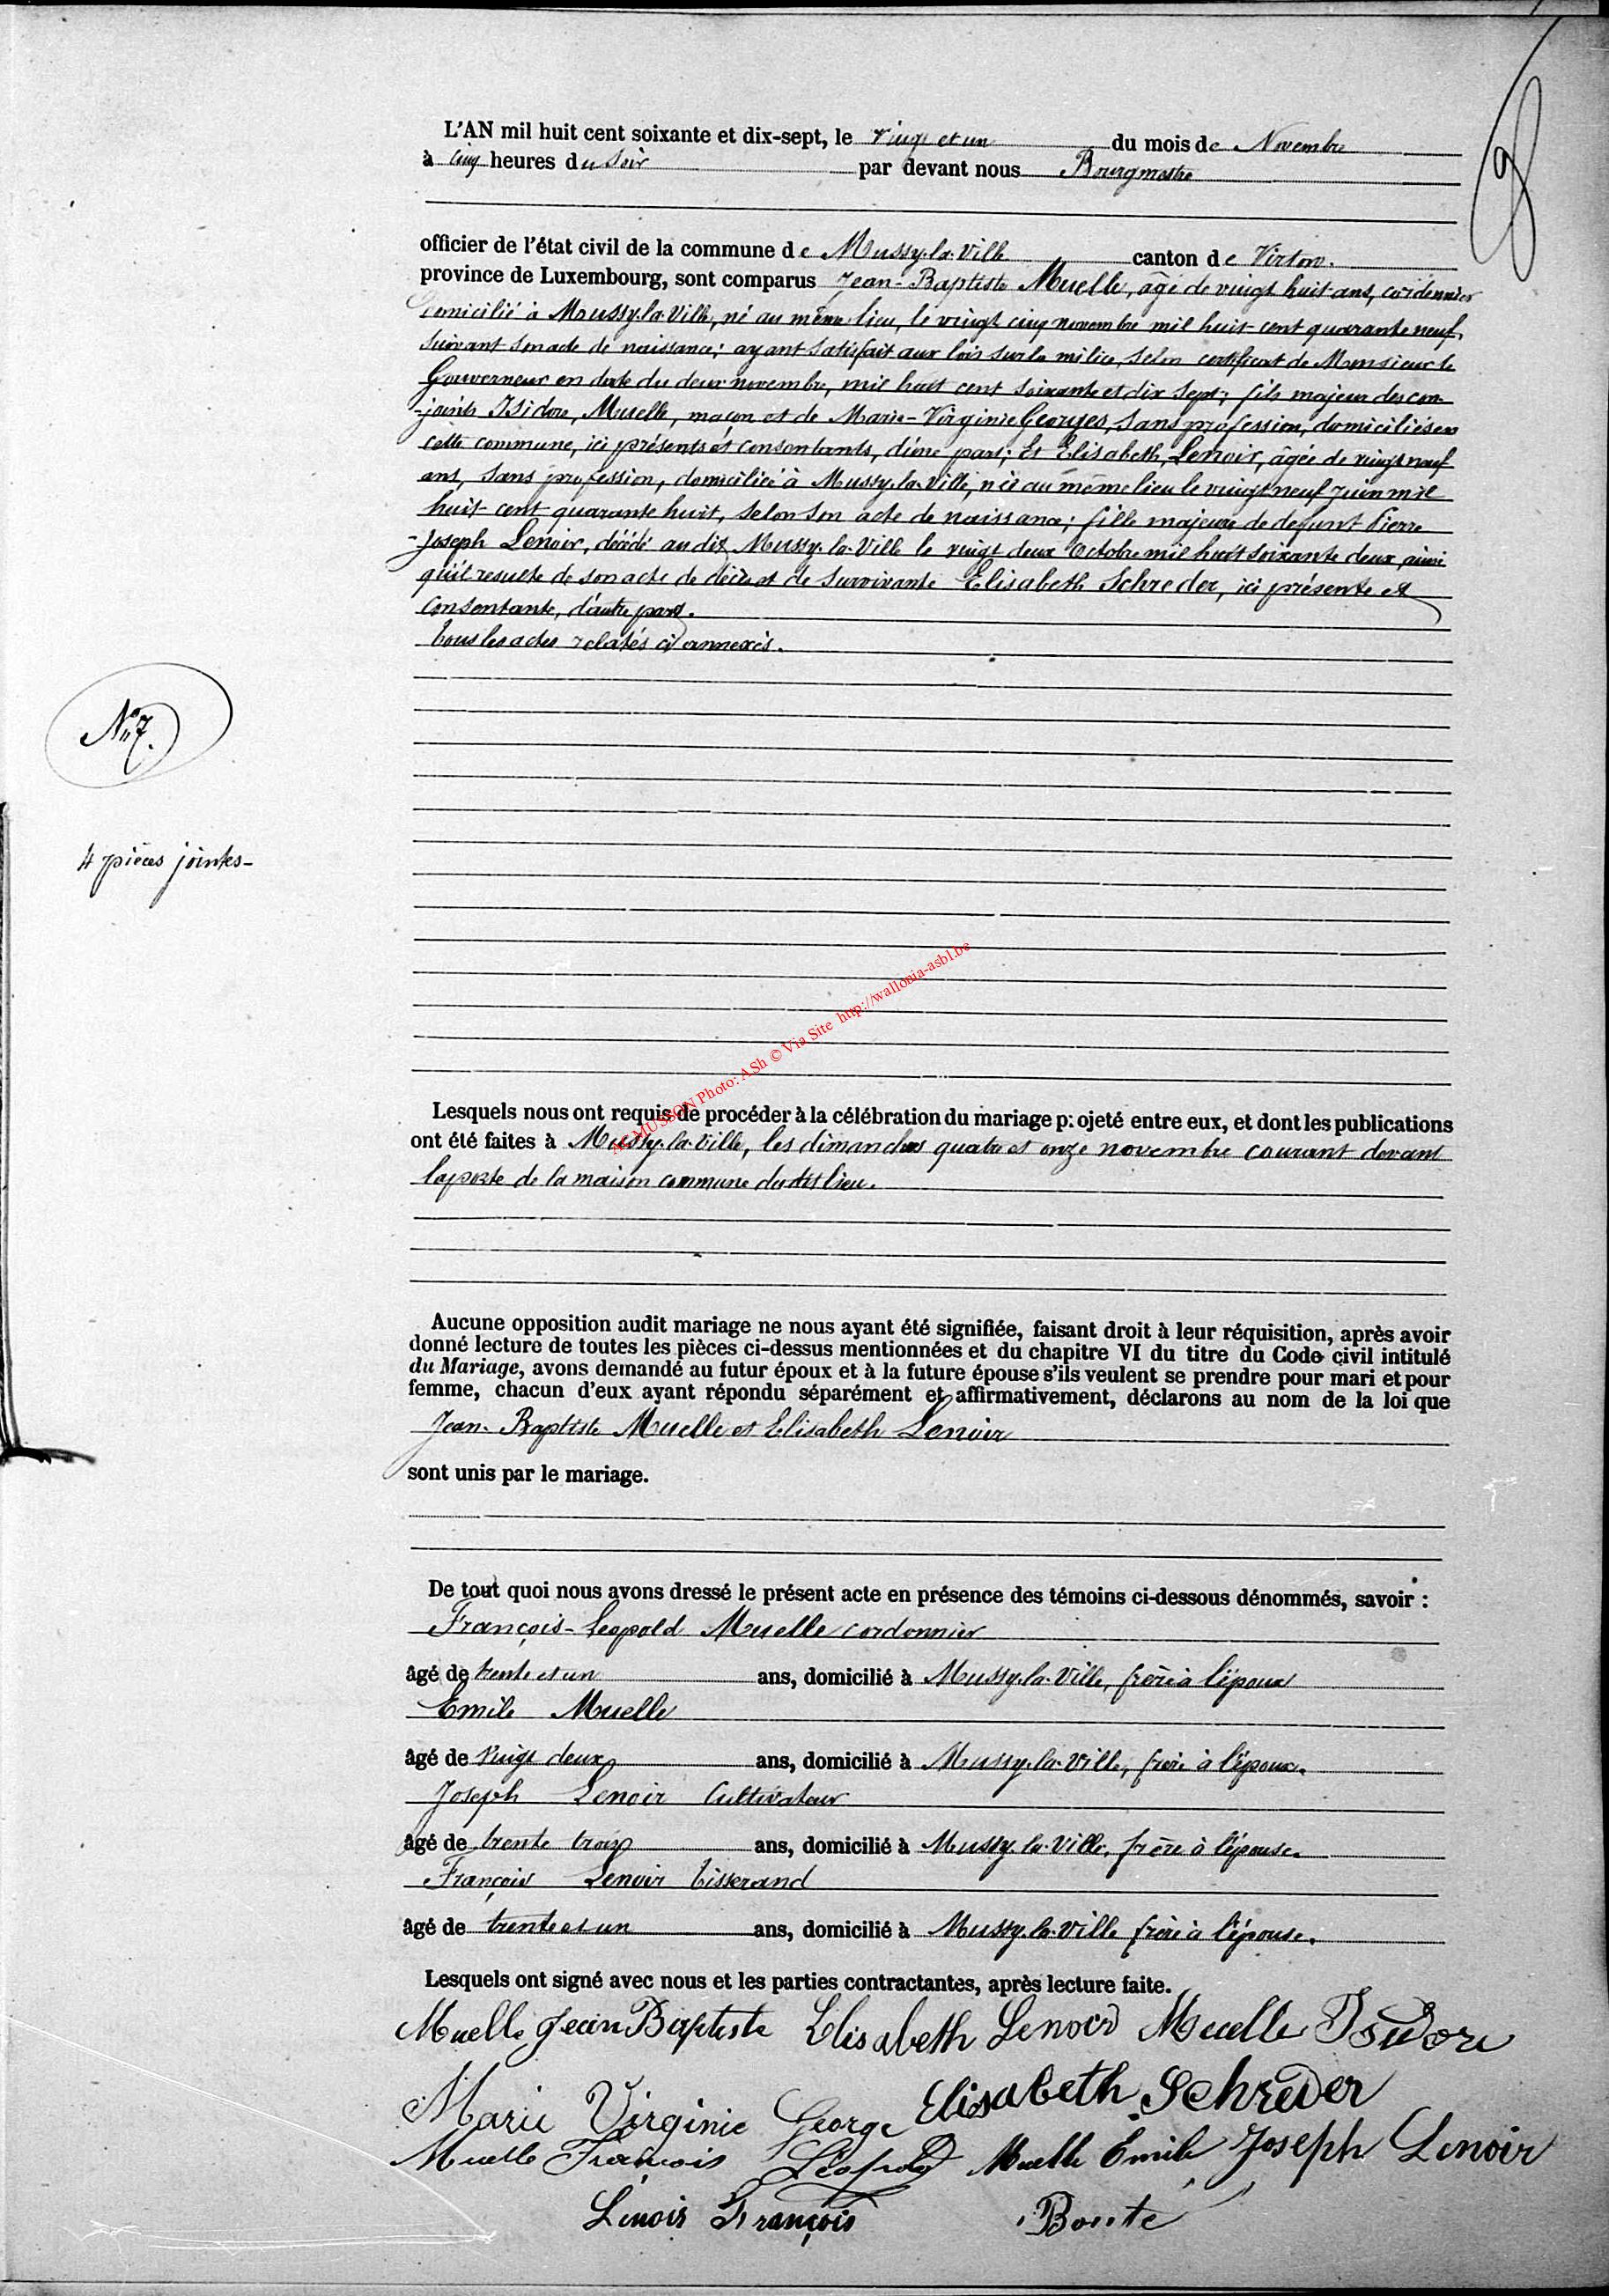 8
L'AN mil huit cent soixante et dix-sept, le vingt et un du mois de Novembre
à cinq heures du soir par devant nous Bourgmestre
officier de l'état civil de la commune de Mussy-la-Ville canton de Virton.
province de Luxembourg, sont comparus Jean-Baptiste Muelle, âgé de vingt huit ans, cordonnier
domicilié à Mussy-la-Ville, né au même lieu, le vingt cinq novembre mil huit cent quarante neuf,
suivant son acte de naissance; ayant satisfait aux lois sur la milice, selon certificat de Monsieur le
Gouverneur en date du deux novembre, mil huit cent soixante et dix sept; fils majeur des con
-joints Isidore, Muelle, maçon et de Marie-Virginie Georges, sans profession, domiciliés en
cette commune, ici présents et consentants, d'une part; Et Elisabeth, Lenoir, âgée de vingt neuf
ans, sans profession, domiciliée à Mussy-la-Ville, née au même lieu le vingt neuf juin mil
huit cent quarante huit, selon son acte de naissance; fille majeure de defunt Pierre
-Joseph Lenoir, décédé au dit Mussy-la-Ville le vingt deux Octobre mil huit soixante deux, ainsi
qu'il resulte de son acte de décès et de survivante Elisabeth Schreder, ici présente et
consentante, d'autre part.
tous les actes relatés ci annexés.
N° 7.
4 pièces jointes-
MUSSON Photo: ASh © Via Site http://wallonia-asbl.be
Lesquels nous ont requis de procéder à la célébration du mariage projeté entre eux, et dont les publications
ont été faites à Mussy-la-Ville, les dimanches quatre et onze novembre courant devant
la porte de la maison commune du dit lieu.
Aucune opposition audit mariage ne nous ayant été signifiée, faisant droit à leur réquisition, après avoir
donné lecture de toutes les pièces ci-dessus mentionnées et du chapitre VI du titre du Code civil intitulé
du Mariage, avons demandé au futur époux et à la future épouse s'ils veulent se prendre pour mari et pour
femme, chacun d'eux ayant répondu séparément et affirmativement, déclarons au nom de la loi que
Jean-Baptiste Muelle et Elisabeth Lenoir
sont unis par le mariage.
De tout quoi nous avons dressé le présent acte en présence des témoins ci-dessous dénommés, savoir :
François-Leopold Muelle cordonnier
âgé de trente et un ans, domicilié à Mussy-la-Ville, frère à l'époux
Emile Muelle
âgé de vingt deux ans, domicilié à Mussy-la-Ville, frère à l'époux.
Joseph Lenoir Cultivateur
âgé de trente trois ans, domicilié à Mussy-la-Ville, frère à l'épouse.
François Lenoir tisserand
âgé de trente et un ans, domicilié à Mussy-la-Ville frère à l'épouse.
Lesquels ont signé avec nous et les parties contractantes, après lecture faite.
Muelle Jean Baptiste Elisabeth Lenoir Muelle Isidore
Marie Virginie George Elisabeth Schreder
Muelle François Léopold Muelle Emile Joseph Lenoir
Lenoir François Bonté